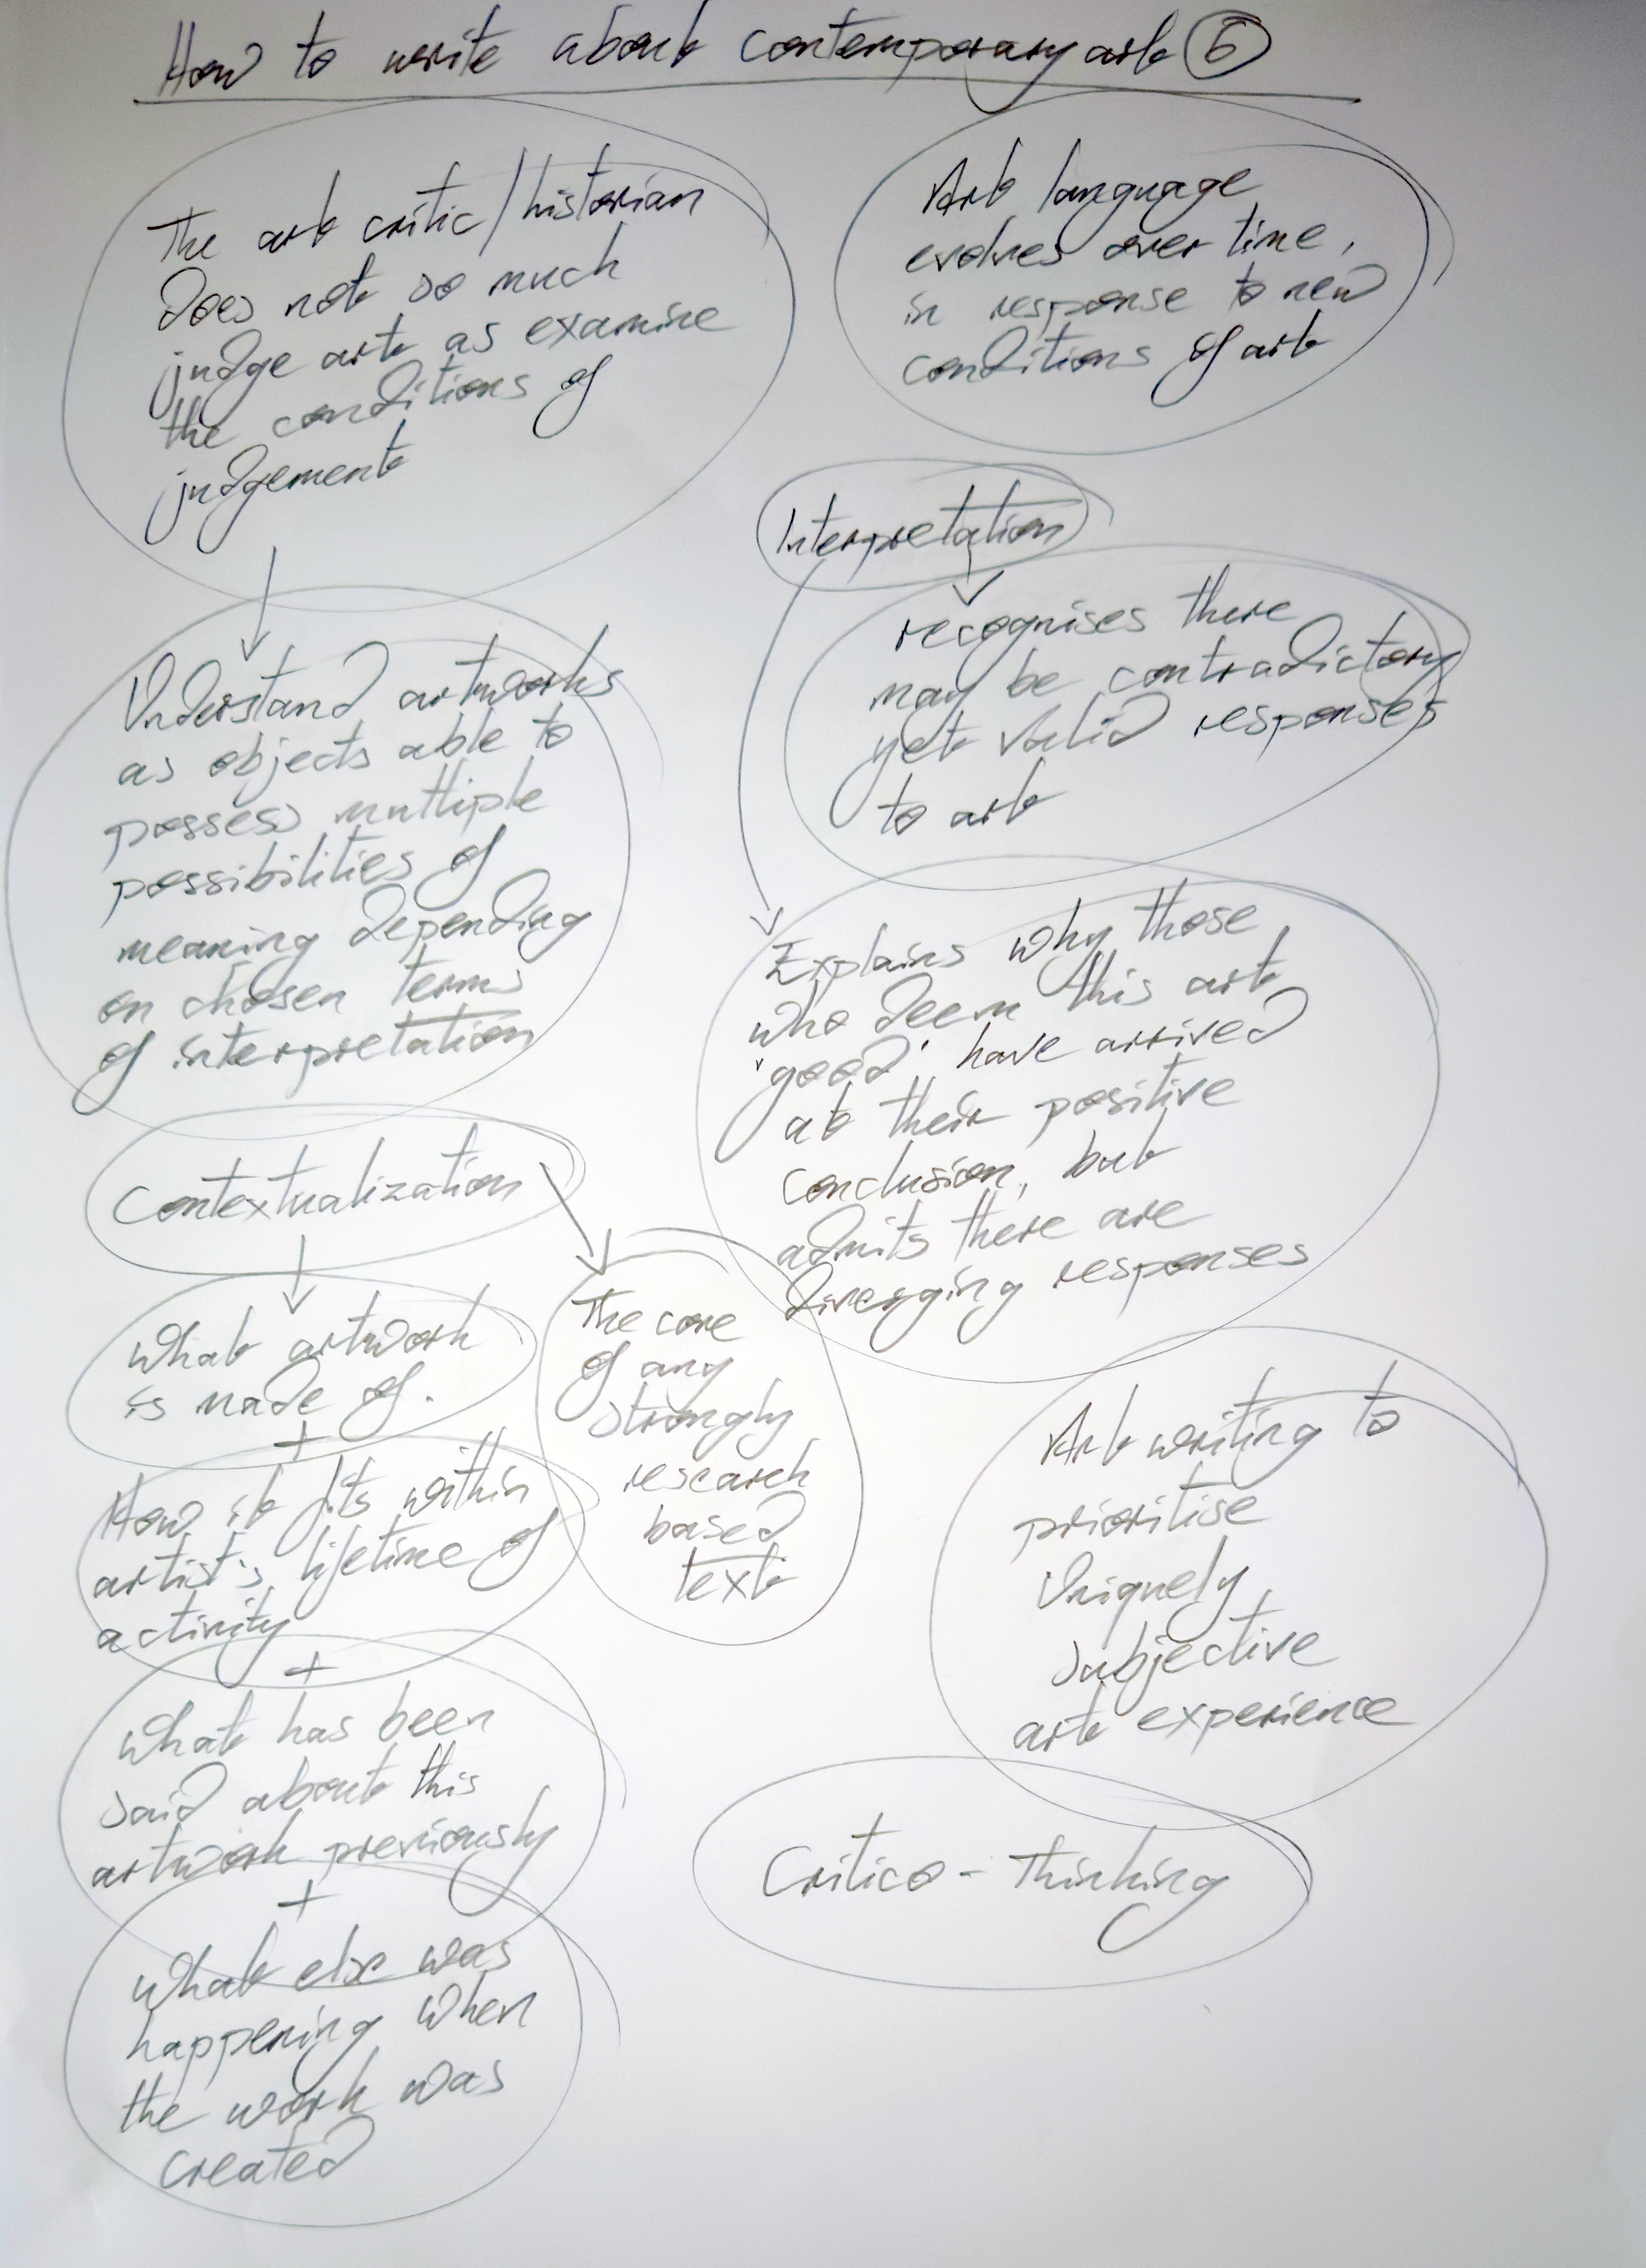 How to write about contemporary art 6
The art critic/historian
does not so much
judge art as examine
the conditions of
judgement
Art language
evolves over time,
in response to new
conditions of art
Interpretation
recognises there
may be contradictory
yet valid responses
to art
Understand artworks
as objects able to
possess multiple
possibilities of
meaning depending
on chosen terms
of interpretation
Explains why those
who deem this art
'good' have arrived
at their positive
conclusion, but
admits there are
diverging responses
Contextualization
What artwork
is made of.
+
How it fits within
artist's lifetime of
activity
+
What has been
said about this
artwork previously
+
What else was
happening when
the work was
created
The core
of any
strongly
research
based
text
Art writing to
prioritise
Uniquely
subjective
art experience
Critico - Thinking